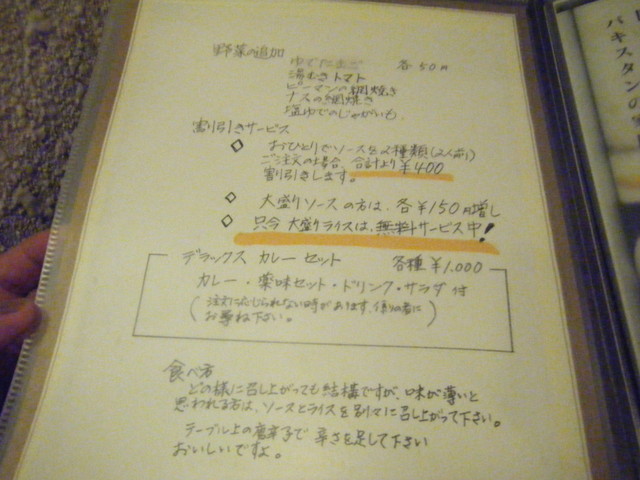 野菜の追加
ゆでたまご 各50円
湯むきトマト
ピーマンの網焼き
ナスの網焼き
塩ゆでのじゃがいも.
割引きサービス
◇ おひとりでソースを2種類(2人前)
ご注文の場合、合計より¥400
割引きします。
◇ 大盛りソースの方は、各¥150円増し
◇ 只今 大盛りライスは、無料サービス中!
デラックス カレーセット 各種¥1.000
カレー・薬味セット・ドリンク・サラダ付
(注文に応じられない時があります、係りの者に
お尋ね下さい。)
食べ方
どの様に召し上がっても結構ですが、味が薄いと
思われる方は、ソースとライスを別々に召し上がって下さい。
テーブル上の唐辛子で 辛さを足して下さい
おいしいですよ。
パキスタンの